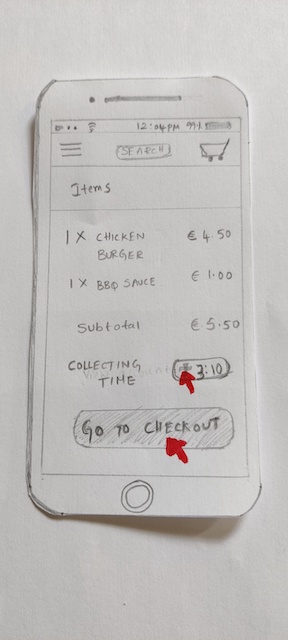 12:04PM 99%
SEARCH
Items
1 X CHICKEN BURGER € 4.50
1 X BBQ SAUCE € 1.00
Subtotal € 5.50
COLLECTING TIME 3:10
GO TO CHECKOUT